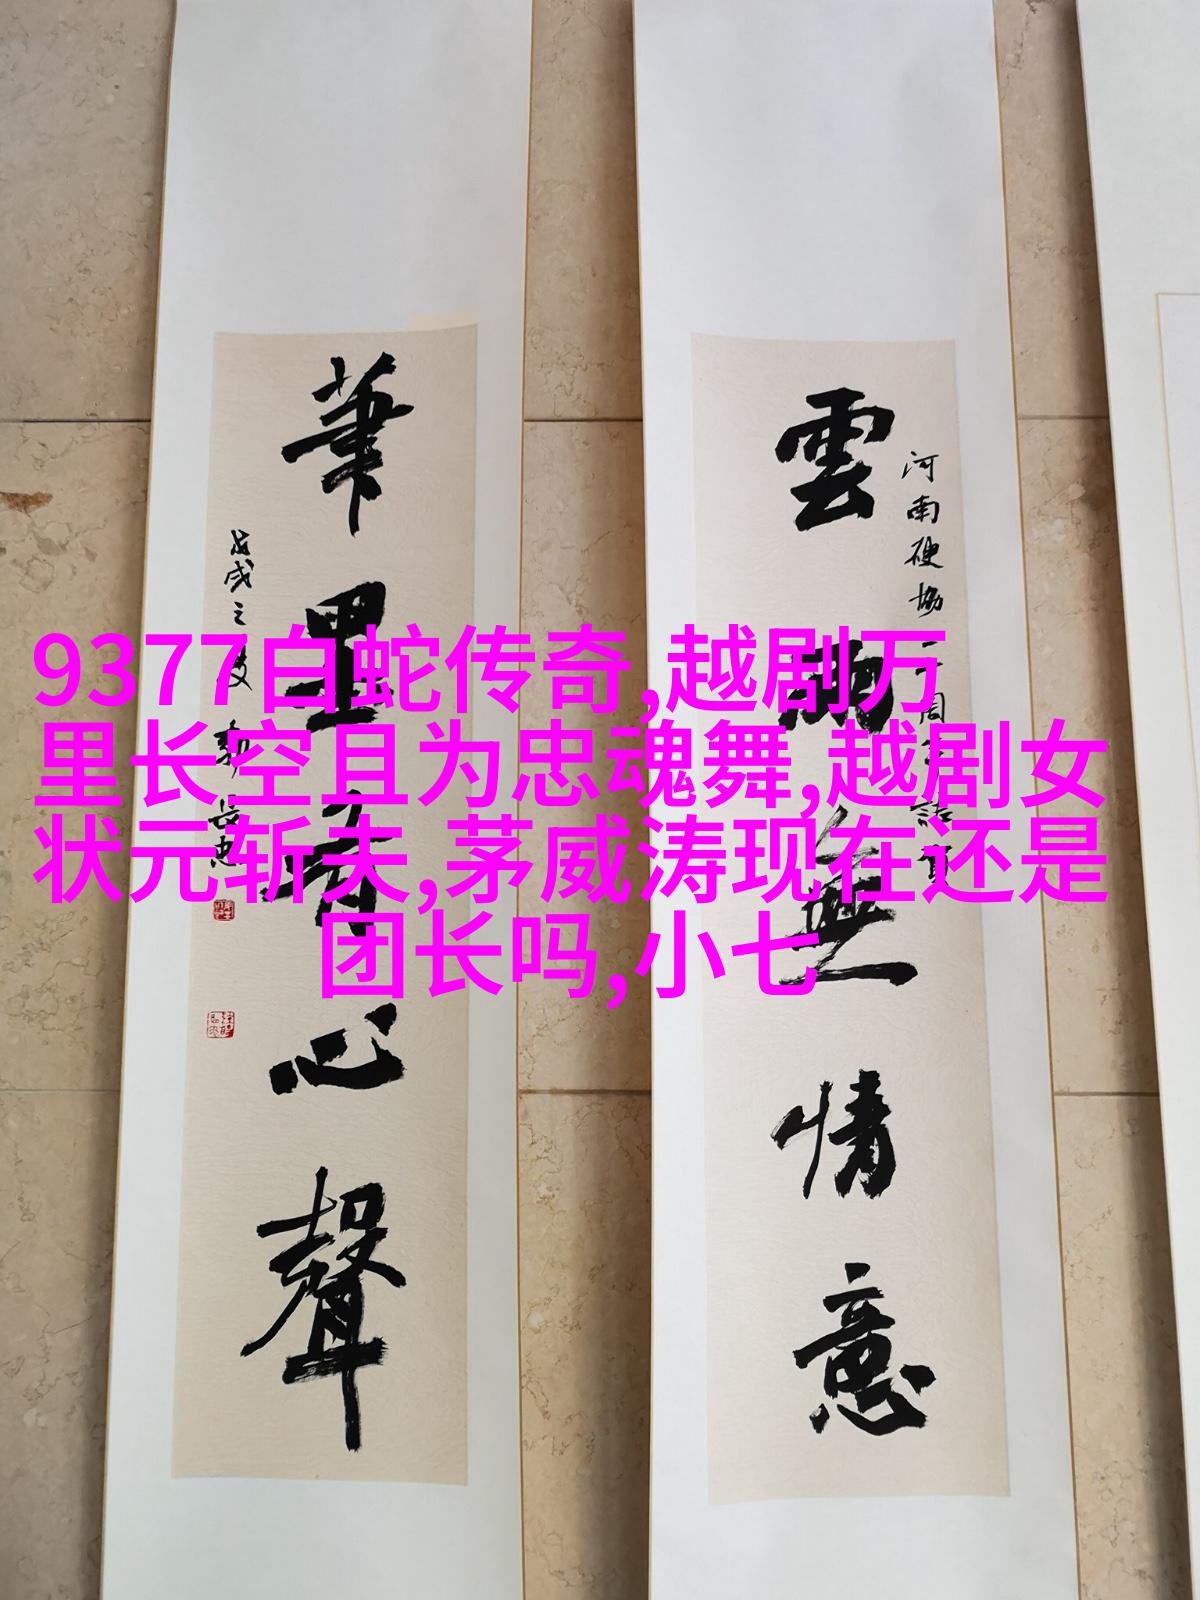 9377白蛇传奇,越剧万
里长空且为忠魂舞,越剧女
状元斩夫,茅威涛现在还是
团长吗,小七
河南硬協
雲無情意
筆里有心聲
戊戌之夏